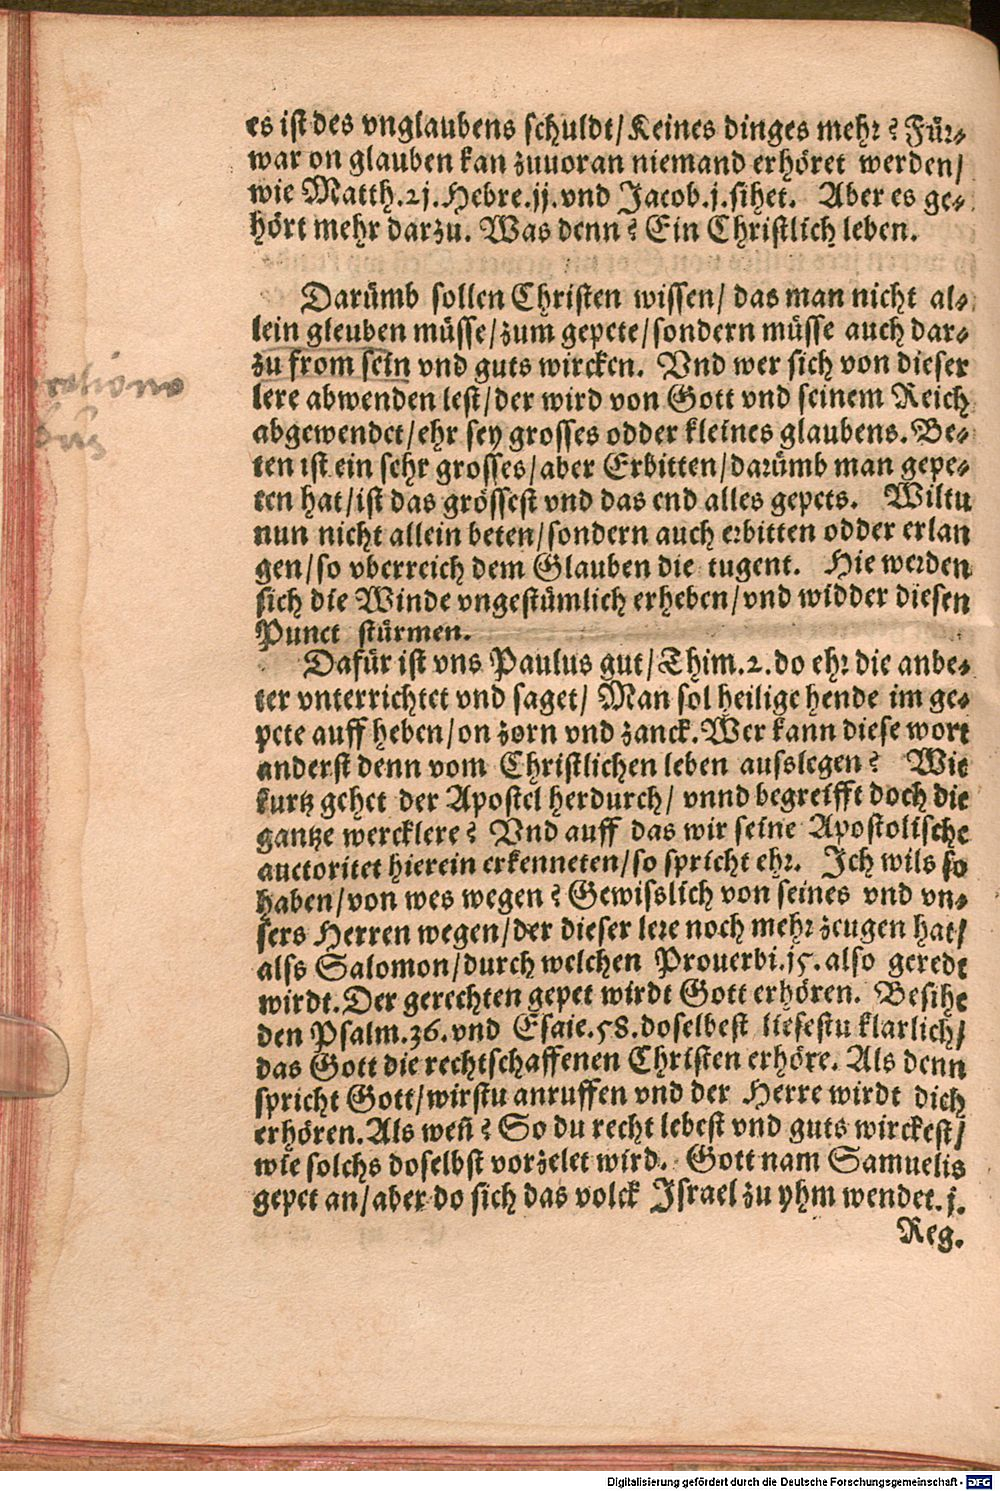 es ist des vnglaubens schuldt/Keines dinges mehr? Für⸗
war on glauben kan zuuoran niemand erhöret werden/
wie Matth.21. Hebre.jj. vnd Jacob.j. sihet. Aber es ge⸗
hört mehr darzu. Was denn? Ein Christlich leben.
Darümb sollen Christen wissen/ das man nicht al⸗
lein gleuben müsse/zum gepete/sondern müsse auch dar⸗
zu from sein vnd guts wircken. Vnd wer sich von dieser
lere abwenden lest/der wird von Gott vnd seinem Reich
abgewendet/ehr sey grosses odder kleines glaubens. Be⸗
ten ist ein sehr grosses/aber Erbitten/darümb man gepe⸗
ten hat/ist das grössest vnd das end alles gepets. Wiltu
nun nicht allein beten/sondern auch erbitten odder erlan
gen/so vberreich dem Glauben die tugent. Hie werden
sich die Winde vngestümlich erheben/vnd widder diesen
Punct stürmen.
Dafür ist vns Paulus gut/Thim.2. do ehr die anbe⸗
ter vnterrichtet vnd saget/ Man sol heilige hende im ge⸗
pete auff heben/on zorn vnd zanck. Wer kann diese wort
anderst denn vom Christlichen leben ausslegen? Wie
kurtz gehet der Apostel herdurch/ vnnd begreifft doch die
gantze wercklere? Vnd auff das wir seine Apostolische
auctoritet hierein erkenneten/so spricht ehr. Ich wils so
haben/von wes wegen? Gewisslich von seines vnd vn⸗
sers Herren wegen/der dieser lere noch mehr zeugen hat/
alss Salomon/durch welchen Prouerbi.j5. also geredt
wirdt. Der gerechten gepet wirdt Gott erhören. Besihe
den Psalm.36. vnd Esaie.58. doselbest liesestu klarlich/
das Gott die rechtschaffenen Christen erhöre. Als denn
spricht Gott/wirstu anruffen vnd der Herre wirdt dich
erhören. Als weñ? So du recht lebest vnd guts wirckest/
wie solchs doselbst vorzelet wird. Gott nam Samuelis
gepet an/aber do sich das volck Israel zu yhm wendet. j.
Reg.
Digitalisierung gefördert durch die Deutsche Forschungsgemeinschaft - DFG